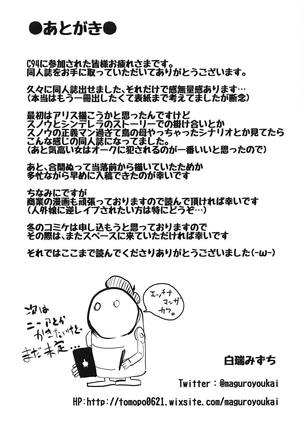 ●あとがき●
C94に参加された皆様お疲れさまです。
同人誌をお手に取っていただいてありがとうございます。
久々に同人誌出せました、それだけで感無量感あります…
(本当はもう一冊出したくて表紙まで考えてましたが断念)
最初はアリス描こうかと思ったんですけど
スノウとシンデレラのストーリーでの掛け合いとか
スノウの正義マン過ぎて島の母やっちったシナリオとか見てたら
こんな感じの同人誌になってました。
(あと気高い女はオークに犯されるのが一番いいと思ったので)
あと、合間ぬって当落前から描いていたためか
多忙ながら早めに入稿できたのが幸いです
ちなみにですが
商業の漫画も頑張っておりますので読んで頂ければ幸いです
(人外娘に逆レイプされたい方は特にどうぞ…)
冬のコミケは申し込もうと思っておりますので
その際、またスペースに来ていただければ幸いです
それではここまで読んでくださりありがとうございました(-ω-)
エッチナ
マンガ
カク。
次は
ニーアとか
かきたいけど…
まだ未定…
白瑞みずち
Twitter：@maguroyoukai
HP:http://tomopo0621.wixsite.com/maguroyoukai